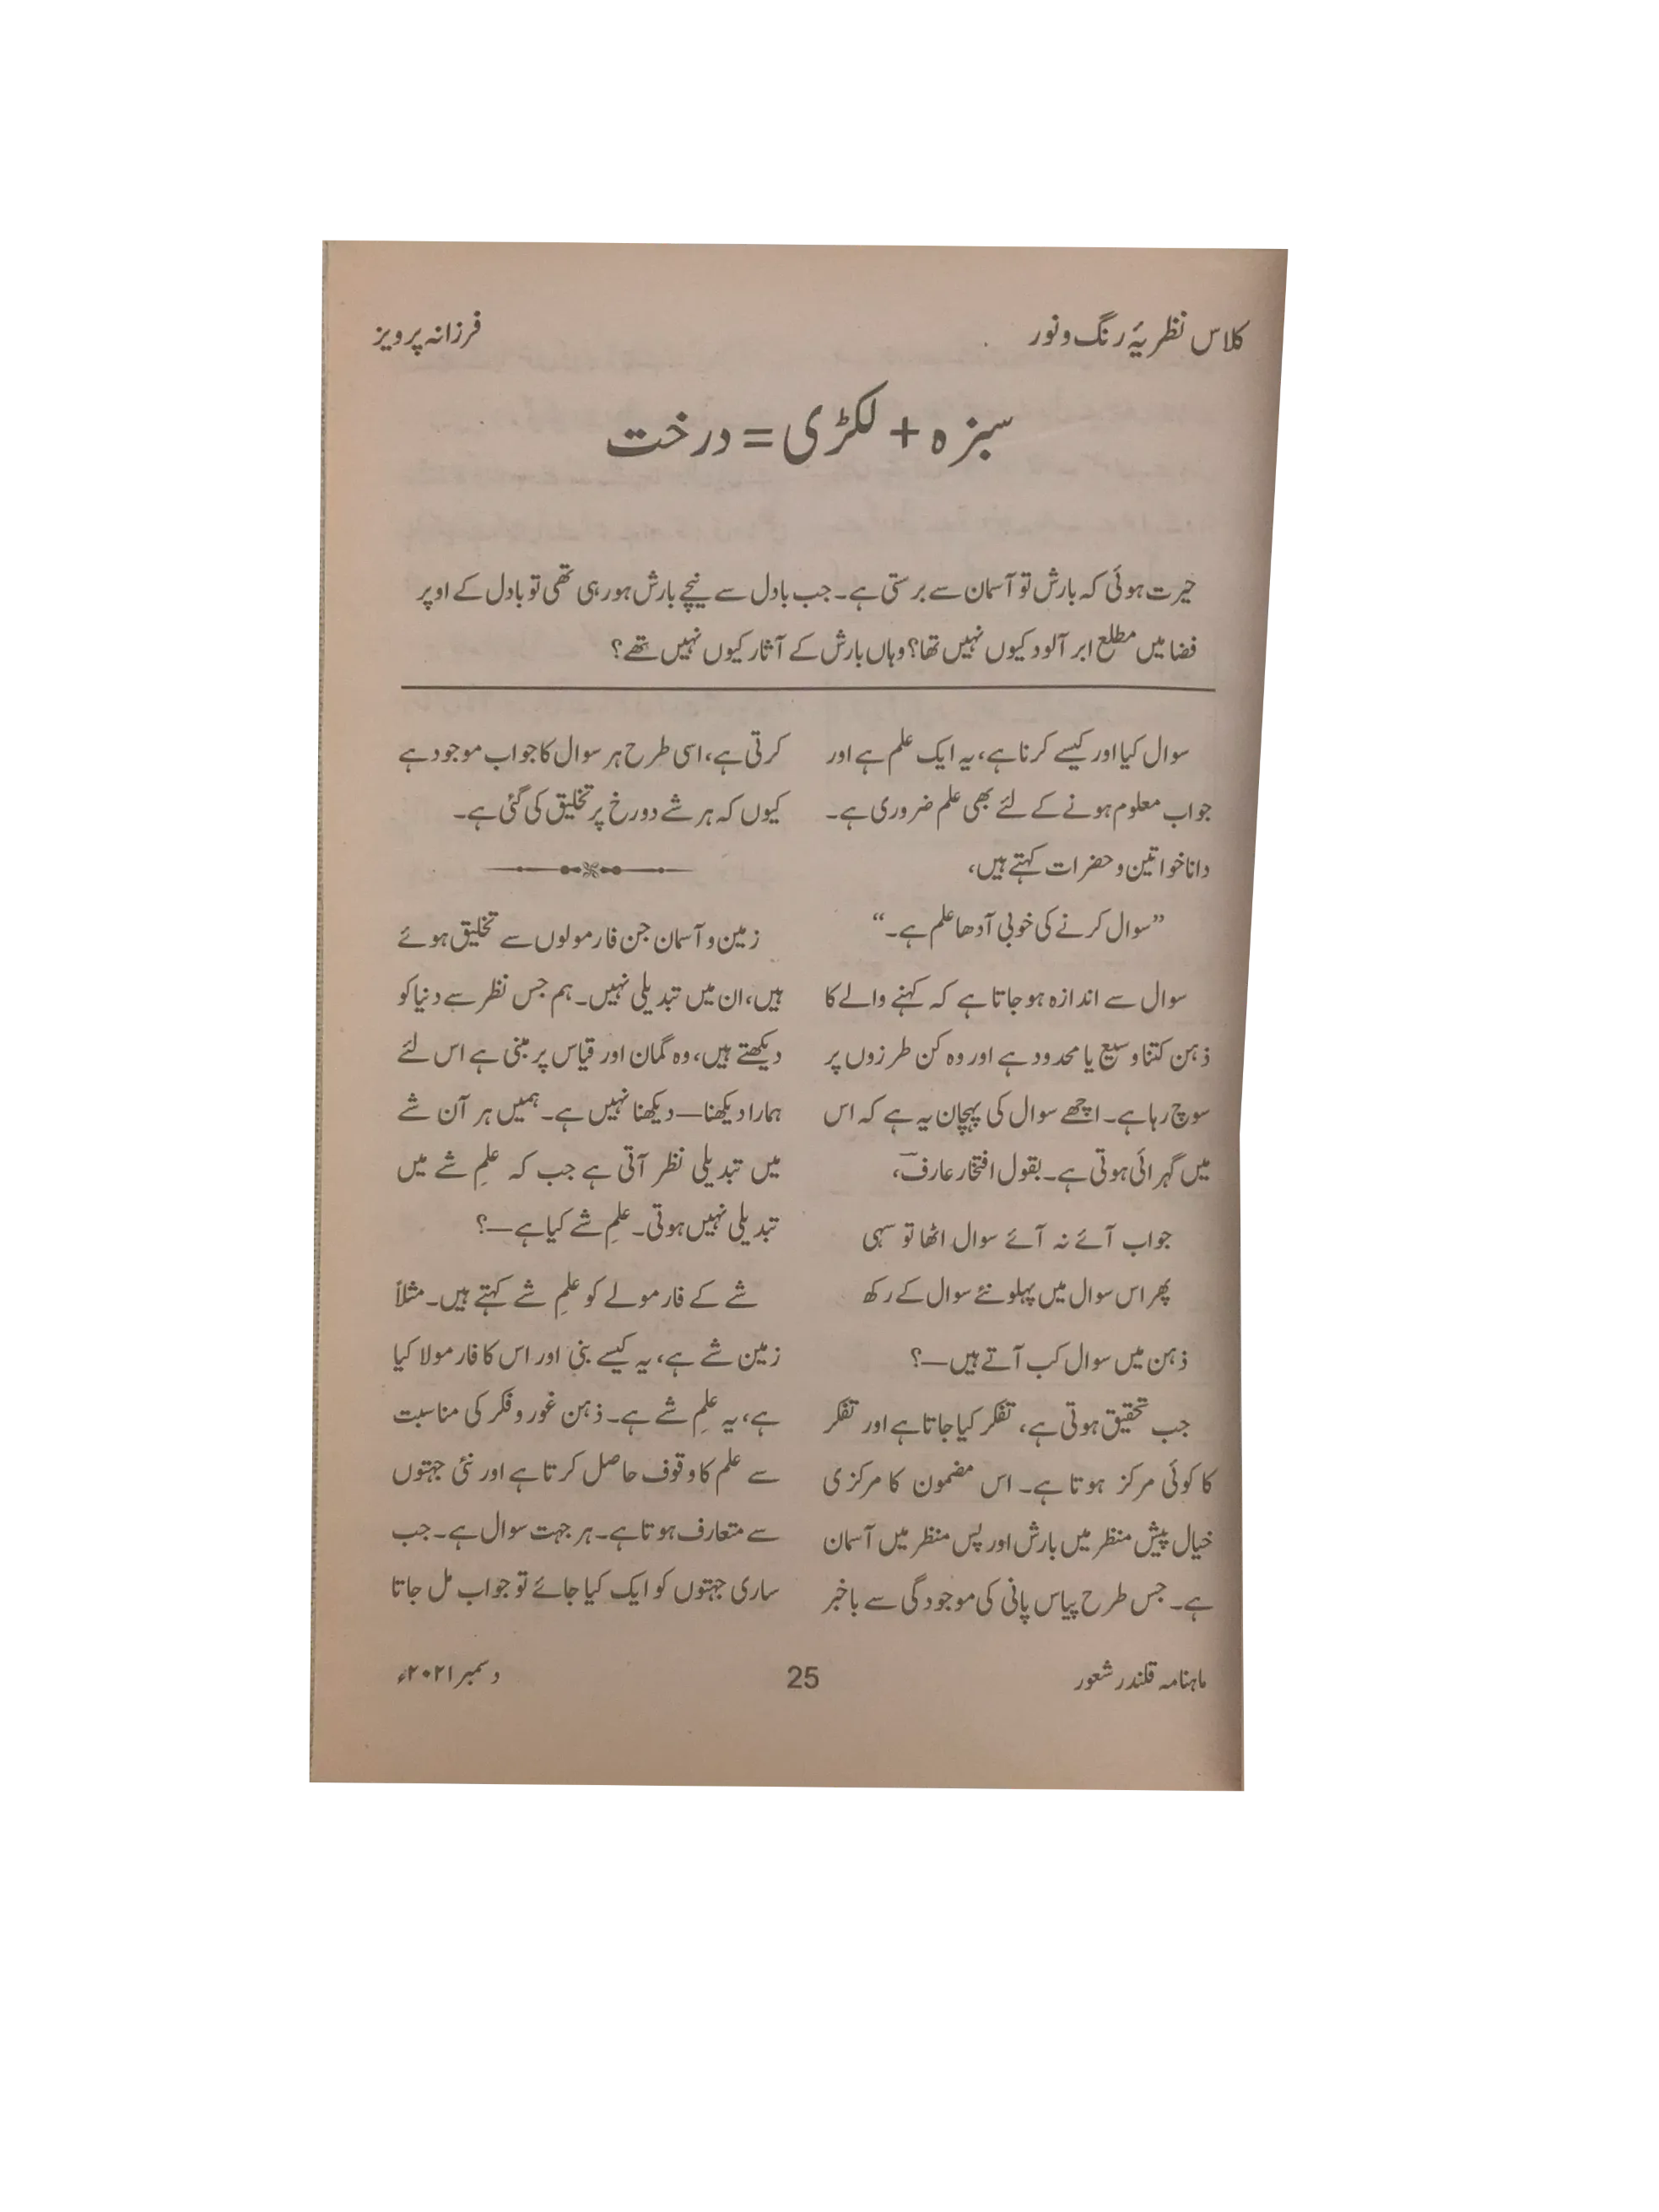 کلاس نظریۂ رنگ و نور
فرزانہ پرویز
سبزہ + لکڑی = درخت
حیرت ہوئی کہ بارش تو آسمان سے برستی ہے۔ جب بادل سے نیچے بارش ہو رہی تھی تو بادل کے اوپر
فضا میں مطلع ابر آلود کیوں نہیں تھا؟ وہاں بارش کے آثار کیوں نہیں تھے؟
سوال کیا اور کیسے کرنا ہے، یہ ایک علم ہے اور
جواب معلوم ہونے کے لئے بھی علم ضروری ہے۔
دانا خواتین و حضرات کہتے ہیں،
”سوال کرنے کی خوبی آدھا علم ہے۔“
سوال سے اندازہ ہو جاتا ہے کہ کہنے والے کا
ذہن کتنا وسیع یا محدود ہے اور وہ کن طرزوں پر
سوچ رہا ہے۔ اچھے سوال کی پہچان یہ ہے کہ اس
میں گہرائی ہوتی ہے۔ بقول افتخار عارفؔ،
جواب آئے نہ آئے سوال اٹھا تو سہی
پھر اس سوال میں پہلو نئے سوال کے رکھ
ذہن میں سوال کب آتے ہیں—؟
جب تحقیق ہوتی ہے، تفکر کیا جاتا ہے اور تفکر
کا کوئی مرکز ہوتا ہے۔ اس مضمون کا مرکزی
خیال پیش منظر میں بارش اور پس منظر میں آسمان
ہے۔ جس طرح پیاس پانی کی موجودگی سے باخبر
کرتی ہے، اسی طرح ہر سوال کا جواب موجود ہے
کیوں کہ ہر شے دو رخ پر تخلیق کی گئی ہے۔
زمین و آسمان جن فارمولوں سے تخلیق ہوئے
ہیں، ان میں تبدیلی نہیں۔ ہم جس نظر سے دنیا کو
دیکھتے ہیں، وہ گمان اور قیاس پر مبنی ہے اس لئے
ہمارا دیکھنا—دیکھنا نہیں ہے۔ ہمیں ہر آن شے
میں تبدیلی نظر آتی ہے جب کہ علمِ شے میں
تبدیلی نہیں ہوتی۔ علمِ شے کیا ہے—؟
شے کے فارمولے کو علمِ شے کہتے ہیں۔ مثلاً
زمین شے ہے، یہ کیسے بنی اور اس کا فارمولا کیا
ہے، یہ علمِ شے ہے۔ ذہن غور و فکر کی مناسبت
سے علم کا وقوف حاصل کرتا ہے اور نئی جہتوں
سے متعارف ہوتا ہے۔ ہر جہت سوال ہے۔ جب
ساری جہتوں کو ایک کیا جائے تو جواب مل جاتا
ماہنامہ قلندر شعور
25
دسمبر ۲۰۲۱ء